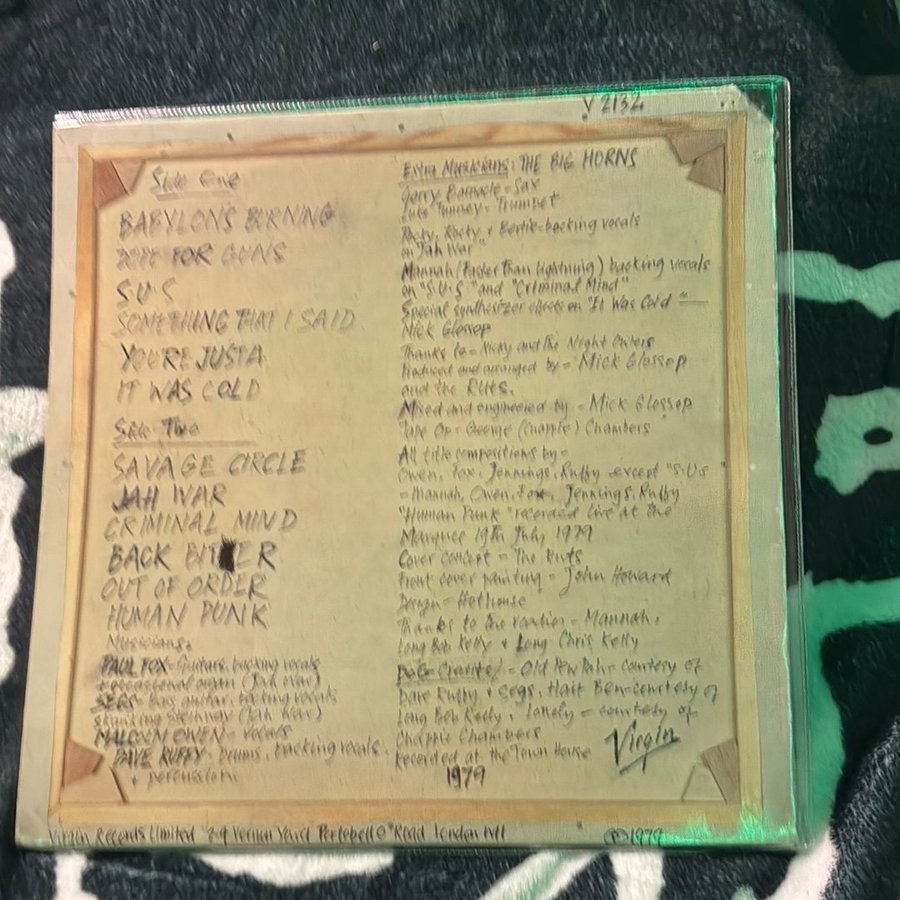 V 2132
Side One
BABYLON'S BURNING
DOPE FOR GUNS
S.U.S
SOMETHING THAT I SAID
YOU'RE JUST A
IT WAS COLD
Side Two
SAVAGE CIRCLE
JAH WAR
CRIMINAL MIND
BACK BITER
OUT OF ORDER
HUMAN PUNK
Musicians.
PAUL FOX - Guitars, backing vocals
+ occasional organ (Jah War)
SEGS - Bass guitar, backing vocals
skanking Steinway (Jah War)
MALCOLM OWEN - Vocals
DAVE RUFFY - Drums, backing vocals.
+ percussion.
Extra Musicians: THE BIG HORNS
Gary Barnacle - Sax
Luke Tunney - Trumpet
Rocky, + Bertie - backing vocals
on "Jah War"
Mannah (Faster Than Lightning) backing vocals
on "S.U.S" and "Criminal Mind"
Special synthesizer effects on "It Was Cold" =
Mick Glossop
Thanks to = Nicky and the Night Owlers
Produced and arranged by = Mick Glossop
and the Ruts.
Mixed and engineered by - Mick Glossop
Tape Op = George (Chappie) Chambers
All title compositions by =
Owen, Fox, Jennings, Ruffy except "S.U.S"
= Mannah, Owen, Fox, Jennings, Ruffy
"Human Punk" recorded live at the
Marquee 19th July 1979
Cover concept = The Ruts
Front cover painting = John Howard
Design = Hothouse
Thanks to the roadies - Mannah,
Long Bob Kelly + Long Chris Kelly
= Old = courtesy of
Dave Ruffy + Segs, Ben - courtesy of
Long Bob Kelly, Lonely = courtesy of
Chappie Chambers
Recorded at the Town House
1979
Virgin
Virgin Records Limited 2-4 Vernon Yard Portobello Road London W11
©1979